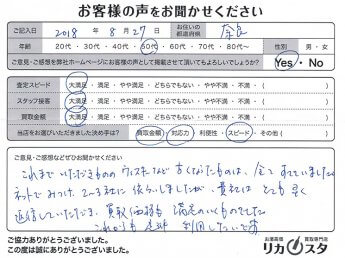 お客様の声をお聞かせください
ご記入日 2018 年 8 月 27 日 お住いの都道府県 奈良
年齢 20代・30代・40代・50代・60代・70代・80代〜 性別 男・女
ご意見・ご感想を弊社ホームページにお客様の声として掲載させて頂いてもよろしいでしょうか? Yes・No
査定スピード 大満足・満足・やや満足・どちらでもない・やや不満・不満・( )
スタッフ接客 大満足・満足・やや満足・どちらでもない・やや不満・不満・( )
買取金額 大満足・満足・やや満足・どちらでもない・やや不満・不満・( )
当店をお選びいただきました決め手は? 買取金額・対応力・利便性・スピード・その他( )
ご意見・ご感想などぜひお聞かせください。
これまでいただきものの ウィスキーなど 古くなったものは、全て すてていました
ネットでみつけ、2〜3社に 依らいしましたが、貴社には とても 早く
返信していただき、買取価格も 満足のいくものでした
これからも 是非 利用したいです
ご協力ありがとうございました。
この度は誠にありがとうございました。
お酒高価買取専門店
リカスタ